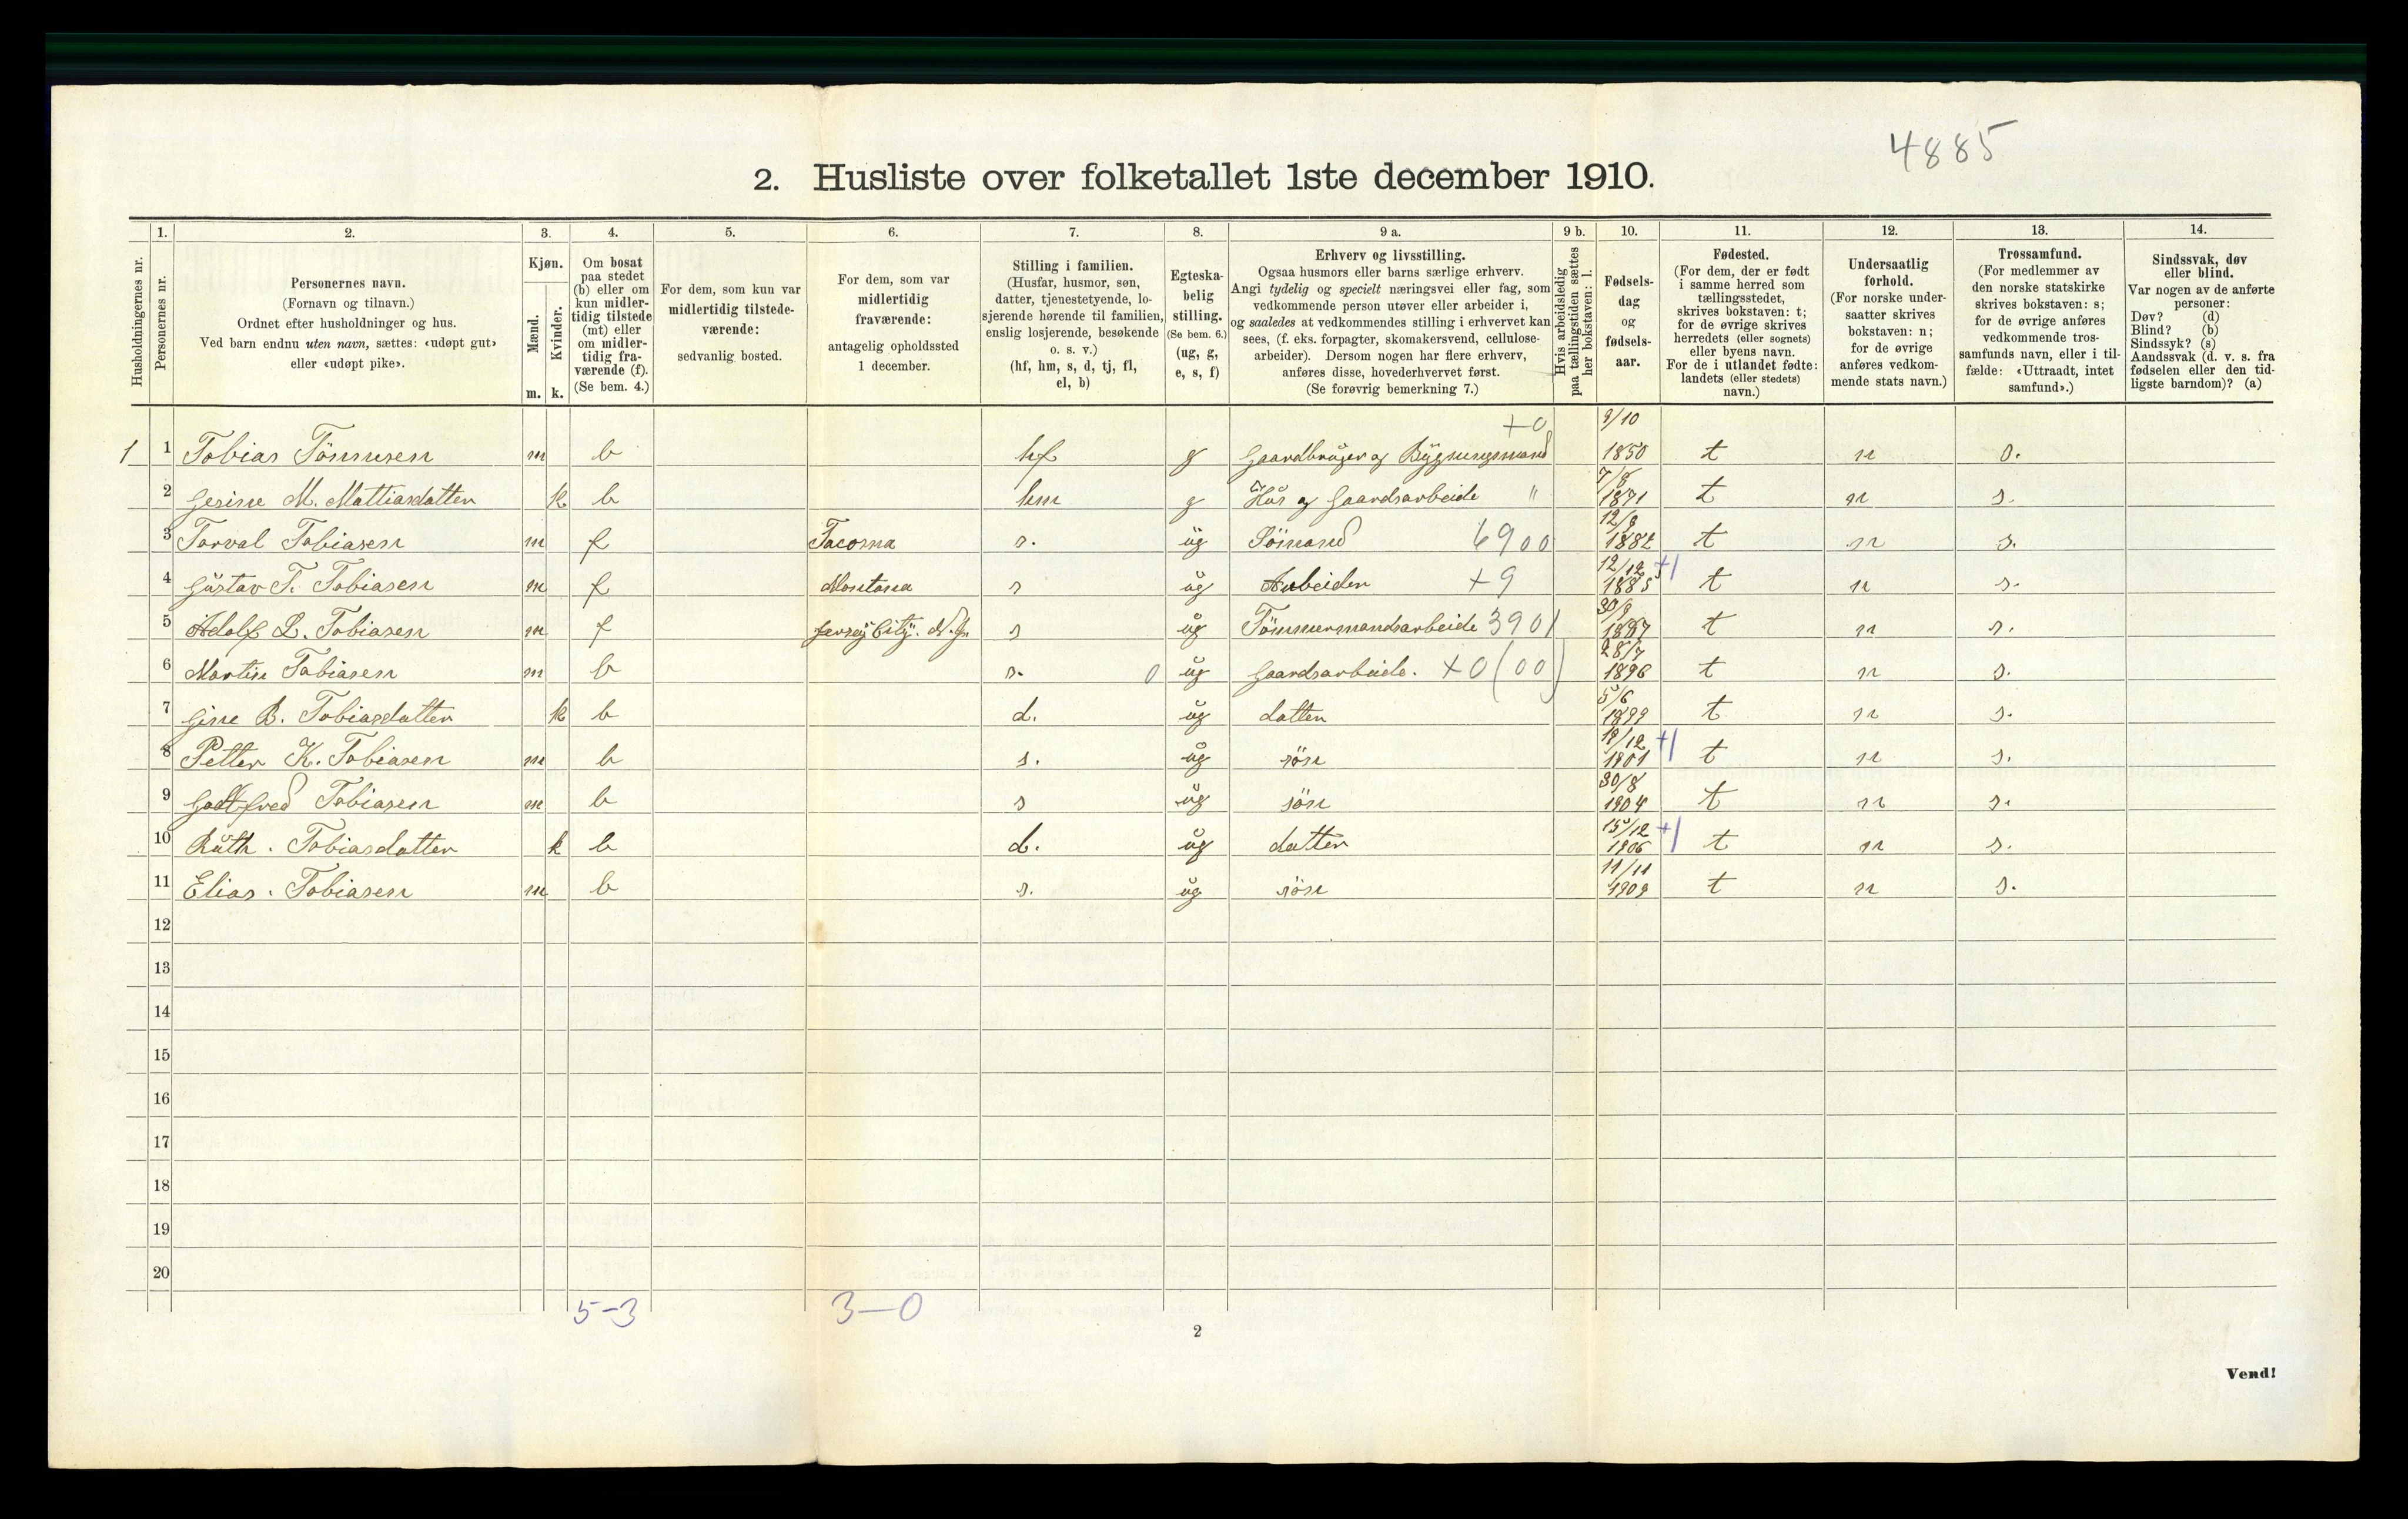 4885
2. Husliste over folketallet 1ste december 1910.
1. 2. 3. 4. 5. 6. 7. 8. 9 a. 9 b. 10. 11. 12. 13. 14.
Husholdningernes nr.
Personernes nr.
Personernes navn.
(Fornavn og tilnavn.)
Ordnet efter husholdninger og hus.
Ved barn endnu uten navn, sættes: «udøpt gut»
eller «udøpt pike».
Kjøn.
Mænd.
Kvinder.
m. k.
Om bosat
paa stedet
(b) eller om
kun midler-
tidig tilstede
(mt) eller
om midler-
tidig fra-
værende (f).
(Se bem. 4.)
For dem, som kun var
midlertidig tilstede-
værende:
sedvanlig bosted.
For dem, som var
midlertidig
fraværende:
antagelig opholdssted
1 december.
Stilling i familien.
(Husfar, husmor, søn,
datter, tjenestetyende, lo-
sjerende hørende til familien,
enslig losjerende, besøkende
o. s. v.)
(hf, hm, s, d, tj, fl,
el, b)
Egteska-
belig
stilling.
(Se bem. 6.)
(ug, g,
e, s, f)
Erhverv og livsstilling.
Ogsaa husmors eller barns særlige erhverv.
Angi tydelig og specielt næringsvei eller fag, som
vedkommende person utøver eller arbeider i,
og saaledes at vedkommendes stilling i erhvervet kan
sees, (f. eks. forpagter, skomakersvend, cellulose-
arbeider). Dersom nogen har flere erhverv,
anføres disse, hovederhvervet først.
(Se forøvrig bemerkning 7.)
Hvis arbeidsledig
paa tællingstiden sættes
her bokstaven: l.
Fødsels-
dag
og
fødsels-
aar.
Fødested.
(For dem, der er født
i samme herred som
tællingsstedet,
skrives bokstaven: t;
for de øvrige skrives
herredets (eller sognets)
eller byens navn.
For de i utlandet fødte:
landets (eller stedets)
navn.)
Undersaatlig
forhold.
(For norske under-
saatter skrives
bokstaven: n;
for de øvrige
anføres vedkom-
mende stats navn.)
Trossamfund.
(For medlemmer av
den norske statskirke
skrives bokstaven: s;
for de øvrige anføres
vedkommende tros-
samfunds navn, eller i til-
fælde: «Uttraadt, intet
samfund».)
Sindssvak, døv
eller blind.
Var nogen av de anførte
personer:
Døv? (d)
Blind? (b)
Sindssyk? (s)
Aandssvak (d. v. s. fra
fødselen eller den tid-
ligste barndom)? (a)
+0 9/10
1 1 Tobias Tönnesen m b hf g Gaardbruger og Bygningsmand 1850 t n s.
2 Gesine M. Mattiasdatter k b hm g Hus og Gaardsarbeide " 7/8 1871 t n s.
3 Torval Tobiasen m f Tacoma s. ug Sömand 6900 12/9 1882 t n s.
4 Gustav T. Tobiasen m f Montana s ug Arbeider +9 12/12 1885 +1 t n s.
5 Adolf L. Tobiasen m f Jersey City. s ug Tömmermandsarbeide 3901 30/9 1887 t n s.
6 Martin Tobiasen m b s. 0 ug Gaardsarbeide. +0(00) 28/7 1896 t n s.
7 Gine B. Tobiasdatter k b d. ug datter 5/6 1899 t n s.
8 Petter K. Tobiasen m b s. ug sön 19/12 1901 +1 t n s.
9 Godtfred Tobiasen m b s ug sön 30/8 1904 t n s.
10 Ruth. Tobiasdatter k b d. ug datter 15/12 1906 +1 t n s.
11 Elias. Tobiasen m b s. ug sön 11/11 1909 t n s.
12
13
14
15
16
17
18
19
20
5-3 3-0
2
Vend!